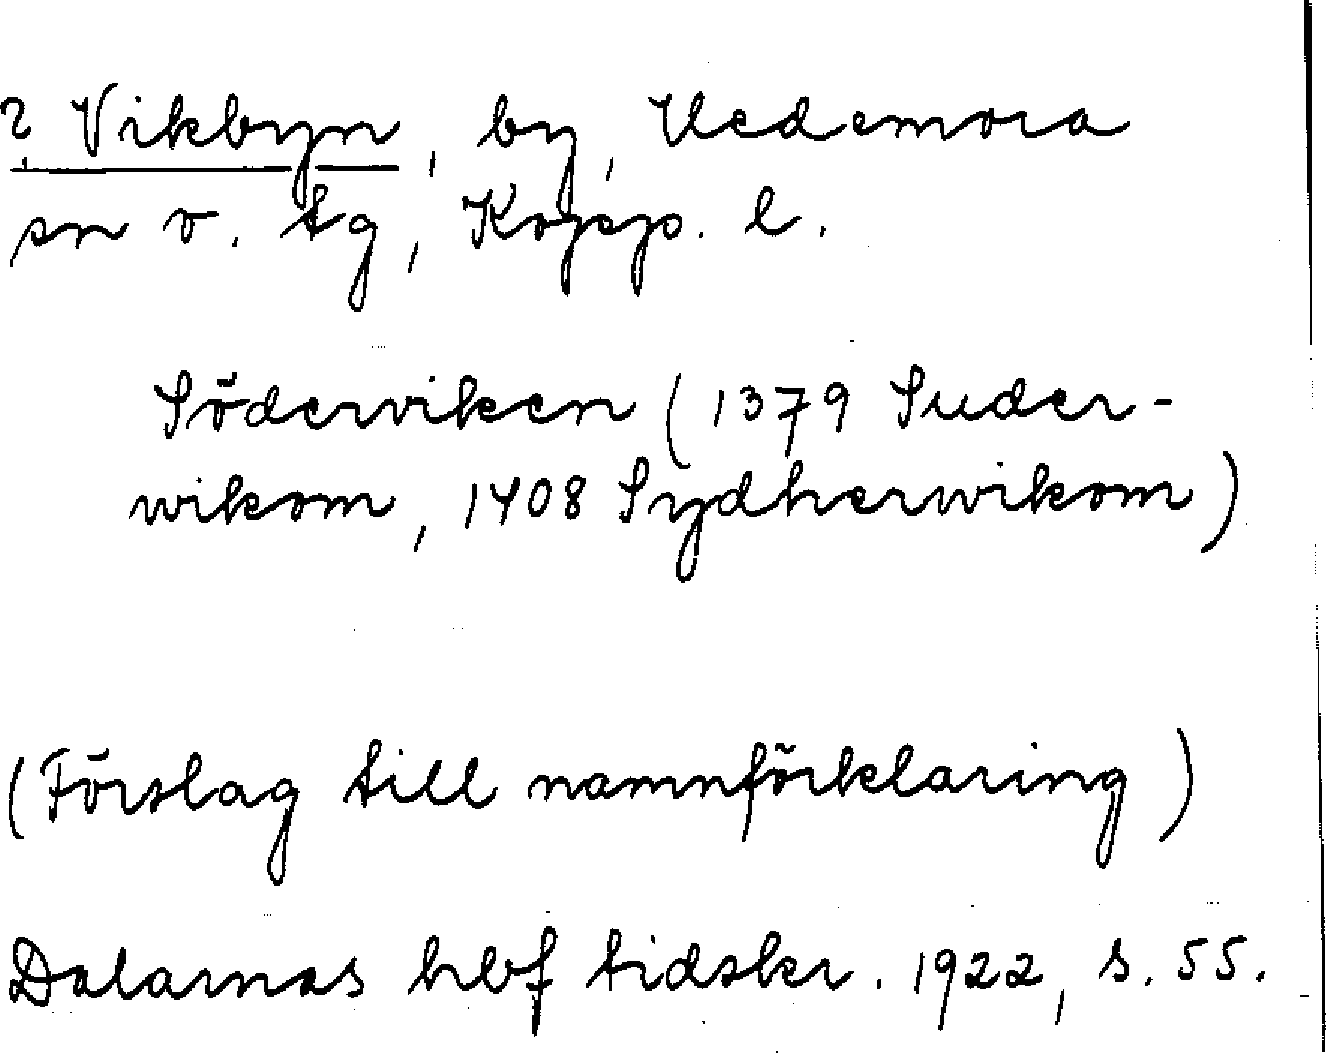 ? Vikbyn, by, Hedemora
sn o. tg, Kopp. l.
Söderviken (1379 Suder-
wikom, 1408 Sydherwikom)
(Förslag till namnförklaring)
Dalarnas hbf tidskr. 1922, s. 55.